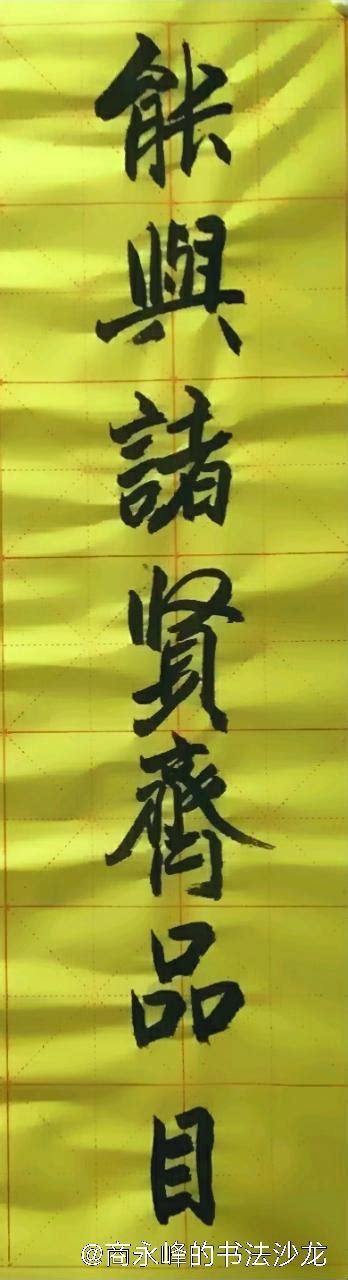 能與諸贤齊品目
@商永峰的书法沙龙